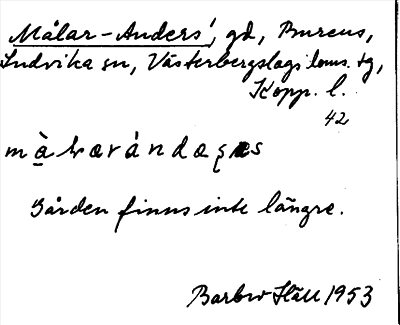 Målar-Anders', gd, Burens,
Ludvika sn, Västerbergslags doms. tg,
Kopp. l.
42
Gården finns inte längre.
Barbro Häll 1953